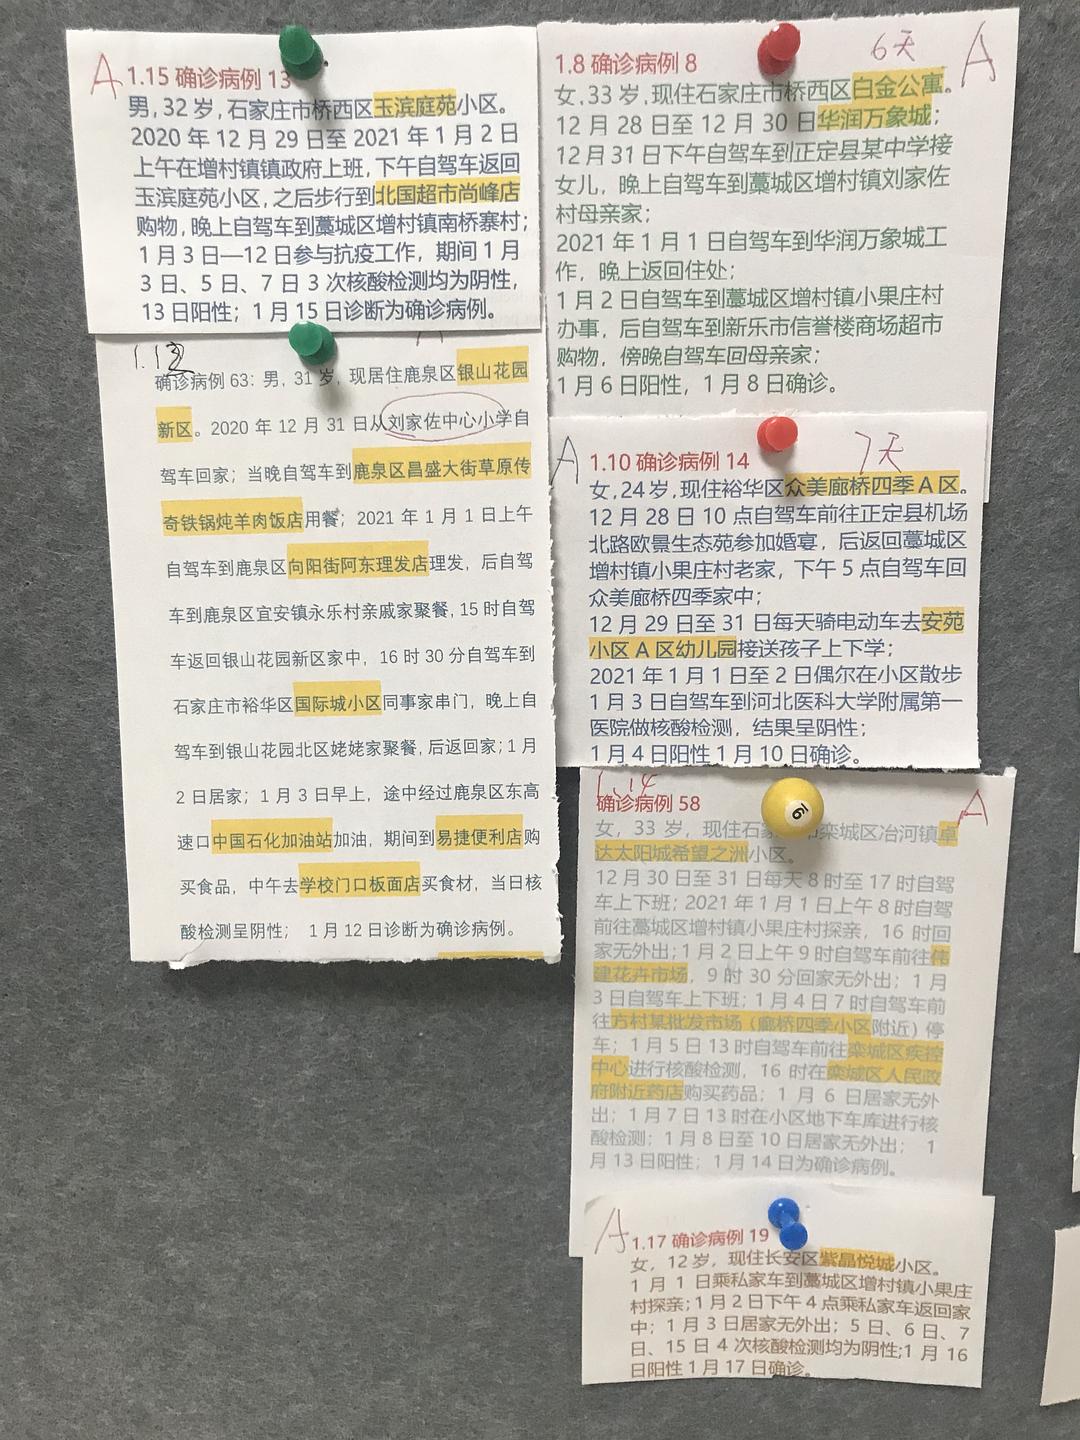 A
1.15 确诊病例 13
男, 32 岁, 石家庄市桥西区玉滨庭苑小区。
2020 年 12 月 29 日至 2021 年 1 月 2 日
上午在增村镇镇政府上班, 下午自驾车返回
玉滨庭苑小区, 之后步行到北国超市尚峰店
购物, 晚上自驾车到藁城区增村镇南桥寨村;
1 月 3 日—12 日参与抗疫工作, 期间 1 月
3 日、5 日、7 日 3 次核酸检测均为阴性,
13 日阳性; 1 月 15 日诊断为确诊病例。
1.12
确诊病例 63: 男, 31 岁, 现居住鹿泉区银山花园
新区。2020 年 12 月 31 日从刘家佐中心小学自
驾车回家; 当晚自驾车到鹿泉区昌盛大街草原传
奇铁锅炖羊肉饭店用餐; 2021 年 1 月 1 日上午
自驾车到鹿泉区向阳街阿东理发店理发, 后自驾
车到鹿泉区宜安镇永乐村亲戚家聚餐, 15 时自驾
车返回银山花园新区家中, 16 时 30 分自驾车到
石家庄市裕华区国际城小区同事家串门, 晚上自
驾车到银山花园北区姥姥家聚餐, 后返回家; 1 月
2 日居家; 1 月 3 日早上, 途中经过鹿泉区东高
速口中国石化加油站加油, 期间到易捷便利店购
买食品, 中午去学校门口板面店买食材, 当日核
酸检测呈阴性; 1 月 12 日诊断为确诊病例。
6天
A
1.8 确诊病例 8
女, 33 岁, 现住石家庄市桥西区白金公寓。
12 月 28 日至 12 月 30 日华润万象城;
12 月 31 日下午自驾车到正定县某中学接
女儿, 晚上自驾车到藁城区增村镇刘家佐
村母亲家;
2021 年 1 月 1 日自驾车到华润万象城工
作, 晚上返回住处;
1 月 2 日自驾车到藁城区增村镇小果庄村
办事, 后自驾车到新乐市信誉楼商场超市
购物, 傍晚自驾车回母亲家;
1 月 6 日阳性, 1 月 8 日确诊。
A
7天
1.10 确诊病例 14
女, 24 岁, 现住裕华区众美廊桥四季 A 区。
12 月 28 日 10 点自驾车前往正定县机场
北路欧景生态苑参加婚宴, 后返回藁城区
增村镇小果庄村老家, 下午 5 点自驾车回
众美廊桥四季家中;
12 月 29 日至 31 日每天骑电动车去安苑
小区 A 区幼儿园接送孩子上下学;
2021 年 1 月 1 日至 2 日偶尔在小区散步
1 月 3 日自驾车到河北医科大学附属第一
医院做核酸检测, 结果呈阴性;
1 月 4 日阳性 1 月 10 日确诊。
1.14
A
确诊病例 58
女, 33 岁, 现住石家 栾城区冶河镇卓
达太阳城希望之洲小区。
12 月 30 日至 31 日每天 8 时至 17 时自驾
车上下班; 2021 年 1 月 1 日上午 8 时自驾
前往藁城区增村镇小果庄村探亲, 16 时回
家无外出; 1 月 2 日上午 9 时自驾车前往伟
建花卉市场, 9 时 30 分回家无外出; 1 月
3 日自驾车上下班; 1 月 4 日 7 时自驾车前
往方村某批发市场 (廊桥四季小区附近) 停
车; 1 月 5 日 13 时自驾车前往栾城区疾控
中心进行核酸检测, 16 时在栾城区人民政
府附近药店购买药品; 1 月 6 日居家无外
出; 1 月 7 日 13 时在小区地下车库进行核
酸检测; 1 月 8 日至 10 日居家无外出; 1
月 13 日阳性; 1 月 14 日为确诊病例。
A
1.17 确诊病例 19
女, 12 岁, 现住长安区紫晶悦城小区。
1 月 1 日乘私家车到藁城区增村镇小果庄
村探亲; 1 月 2 日下午 4 点乘私家车返回家
中; 1 月 3 日居家无外出; 5 日、6 日、7
日、15 日 4 次核酸检测均为阴性; 1 月 16
日阳性 1 月 17 日确诊。